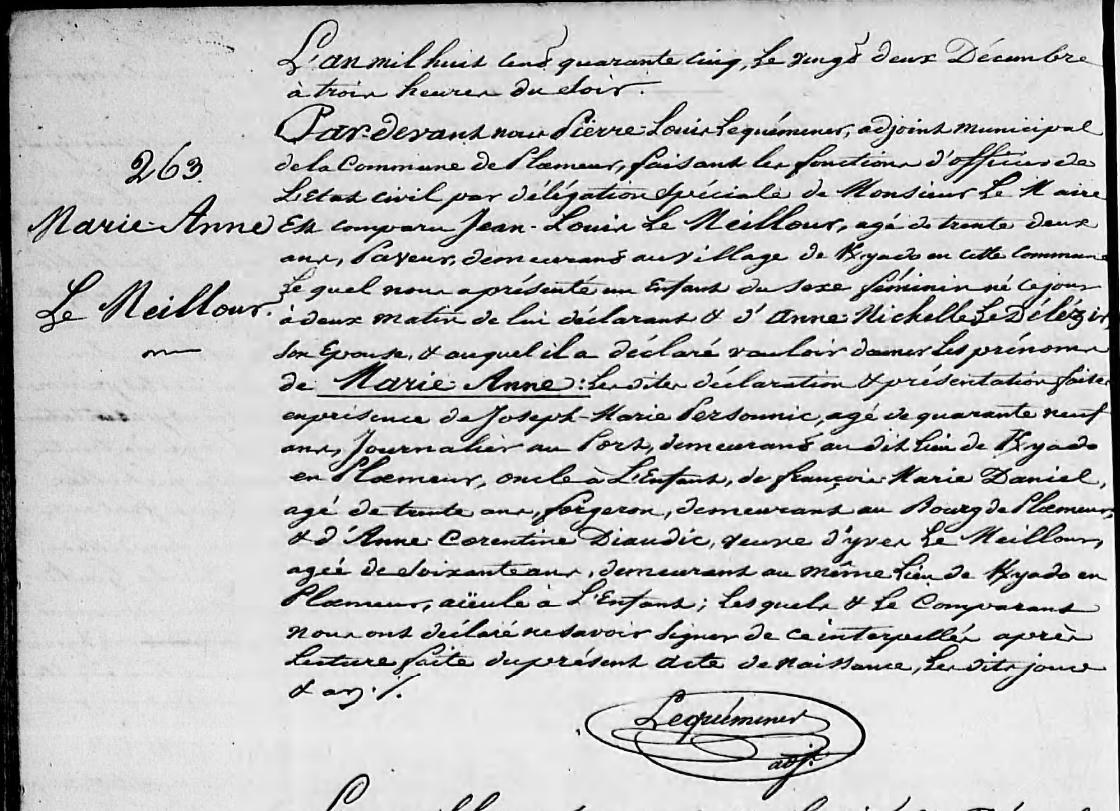 263.
Marie-Anne
Le Meillour.
L'an mil huit cent quarante cinq, le vingt deux Décembre
à trois heures du soir.
Par-devant nous Pierre Louis Lequémener, adjoint municipal
de la Commune de Plœmeur, faisant les fonctions d'officier de
L'Etat civil par délégation spéciale de Monsieur Le Maire
Est comparu Jean-Louis Le Meillour, agé de trente deux
ans, Paveur, demeurant au village de Kyado en cette commune
Lequel nous a présenté un Enfant du sexe féminin né ce jour
à deux matin de lui déclarant & d'Anne Michelle Le Délézir
son Epouse, & auquel il a déclaré vouloir donner les prénoms
de Marie Anne : Les dites déclaration & présentation faites
en présence de Joseph-Marie Personnic, agé de quarante neuf
ans, Journalier au Port, demeurant au dit lieu de Kyado
en Plœmeur, oncle à L'Enfant, de françois Marie Daniel,
agé de trente ans, forgeron, demeurant au Bourg de Plœmeur,
& d'Anne Corentine Diaudic, veuve d'yves Le Meillour,
agée de soixante ans, demeurant au même lieu de Kyado en
Plœmeur, aïeule à L'Enfant ; Lesquels & Le Comparant
nous ont déclaré ne savoir signer de ce interpellés après
Lecture faite du présent acte de naissance, Les dits jour
& an ./.
Lequémener
adjt.